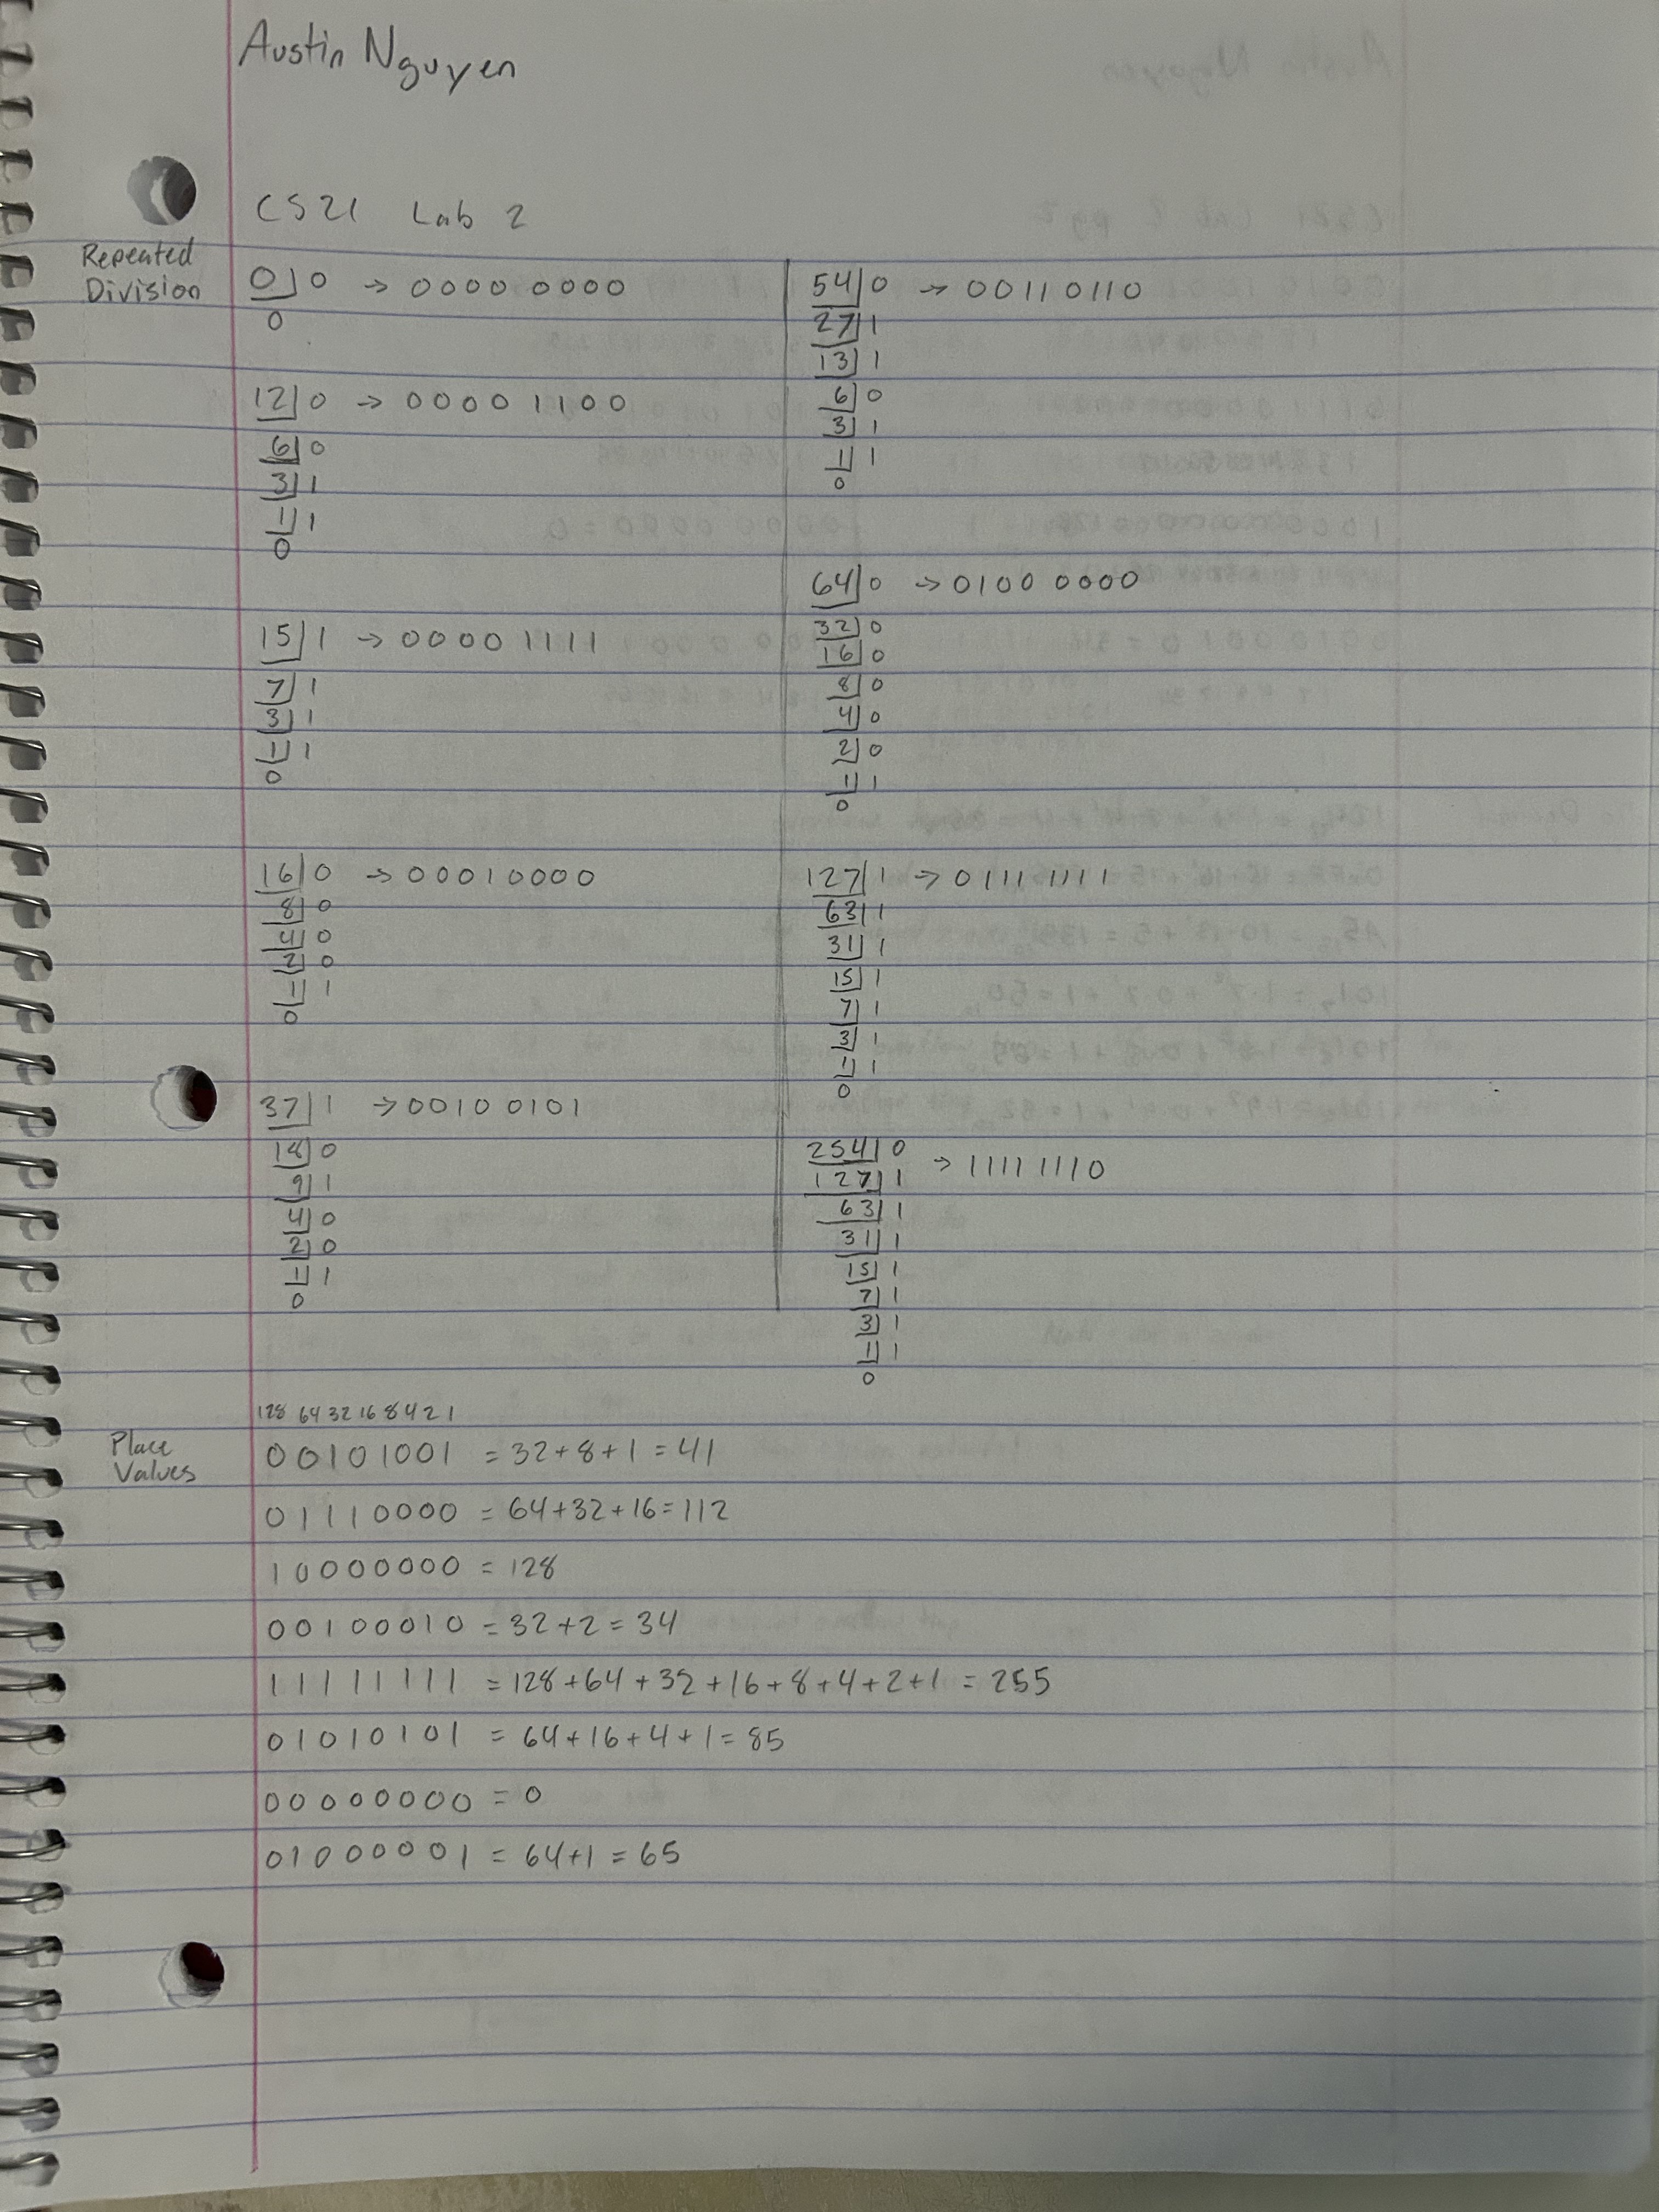 Austin Nguyen
CS21 Lab 2
Repeated
Division
0 0 → 0000 0000
0
12 0 → 00001100
6 0
3 1
1 1
0
15 1 → 00001111
7 1
3 1
1 1
0
16 0 → 00010000
8 0
4 0
2 0
1 1
0
37 1 → 00100101
18 0
9 1
4 0
2 0
1 1
0
54 0 → 00110110
27 1
13 1
6 0
3 1
1 1
0
64 0 → 0100 0000
32 0
16 0
8 0
4 0
2 0
1 1
0
127 1 → 01111111
63 1
31 1
15 1
7 1
3 1
1 1
0
254 0 → 11111110
127 1
63 1
31 1
15 1
7 1
3 1
1 1
0
Place
Values
128 64 32 16 8 4 2 1
00101001 = 32+8+1=41
01110000 = 64+32+16=112
10000000 = 128
00100010 = 32+2=34
11111111 = 128+64+32+16+8+4+2+1 = 255
01010101 = 64+16+4+1=85
00000000 = 0
01000001 = 64+1=65